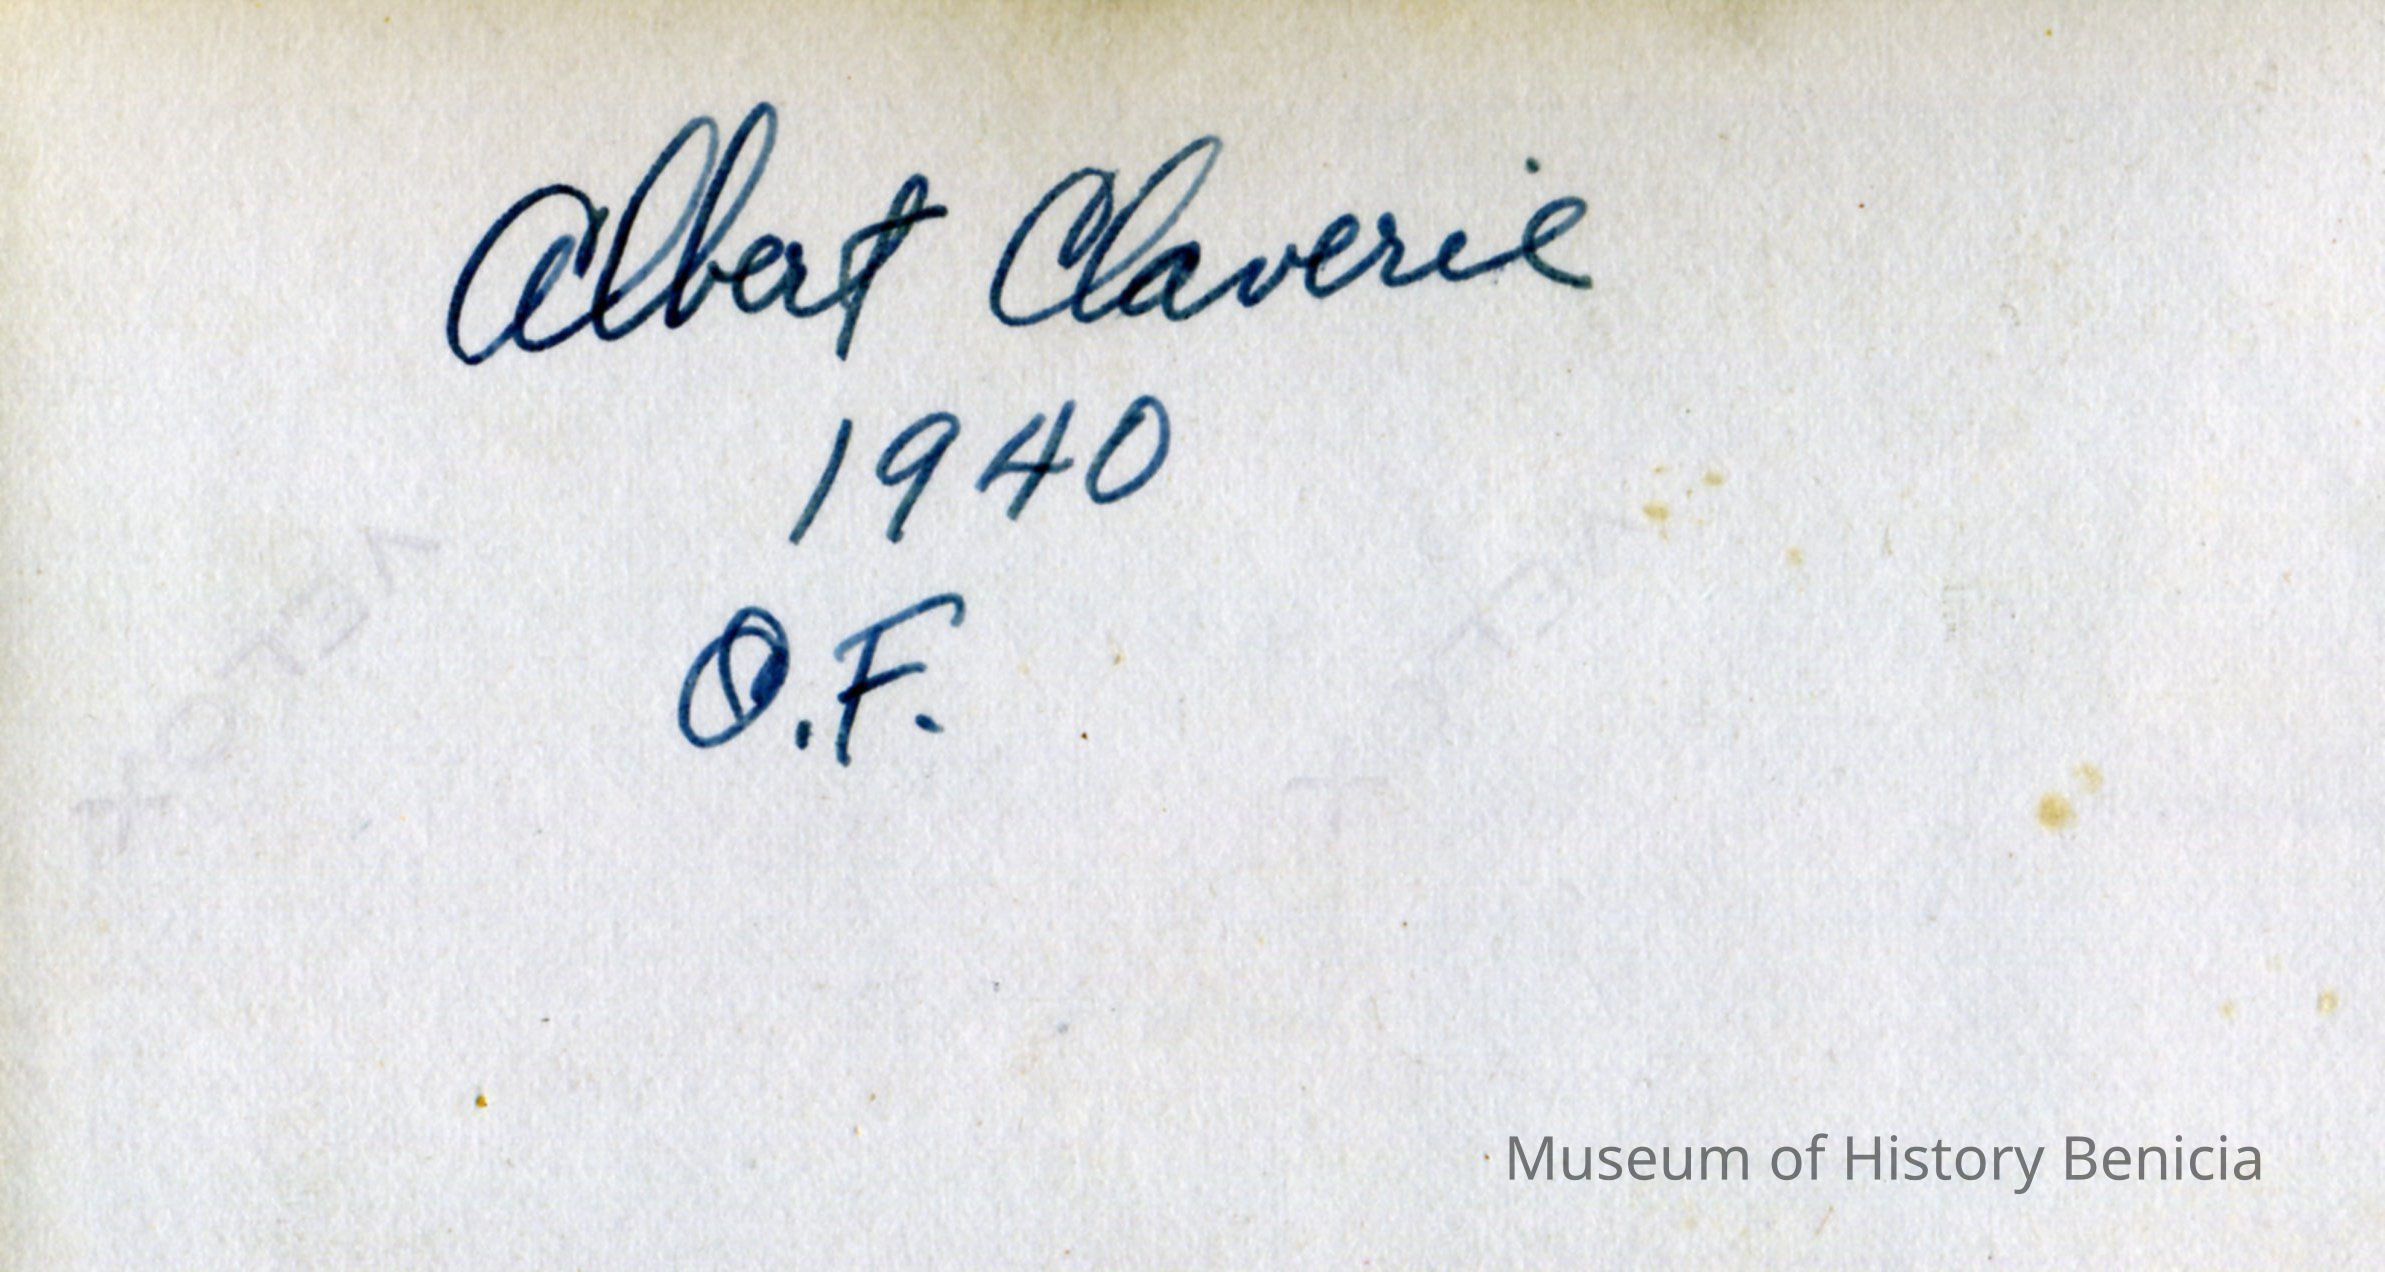 Albert Claverie
1940
O.F.
VELOX
Museum of History Benicia